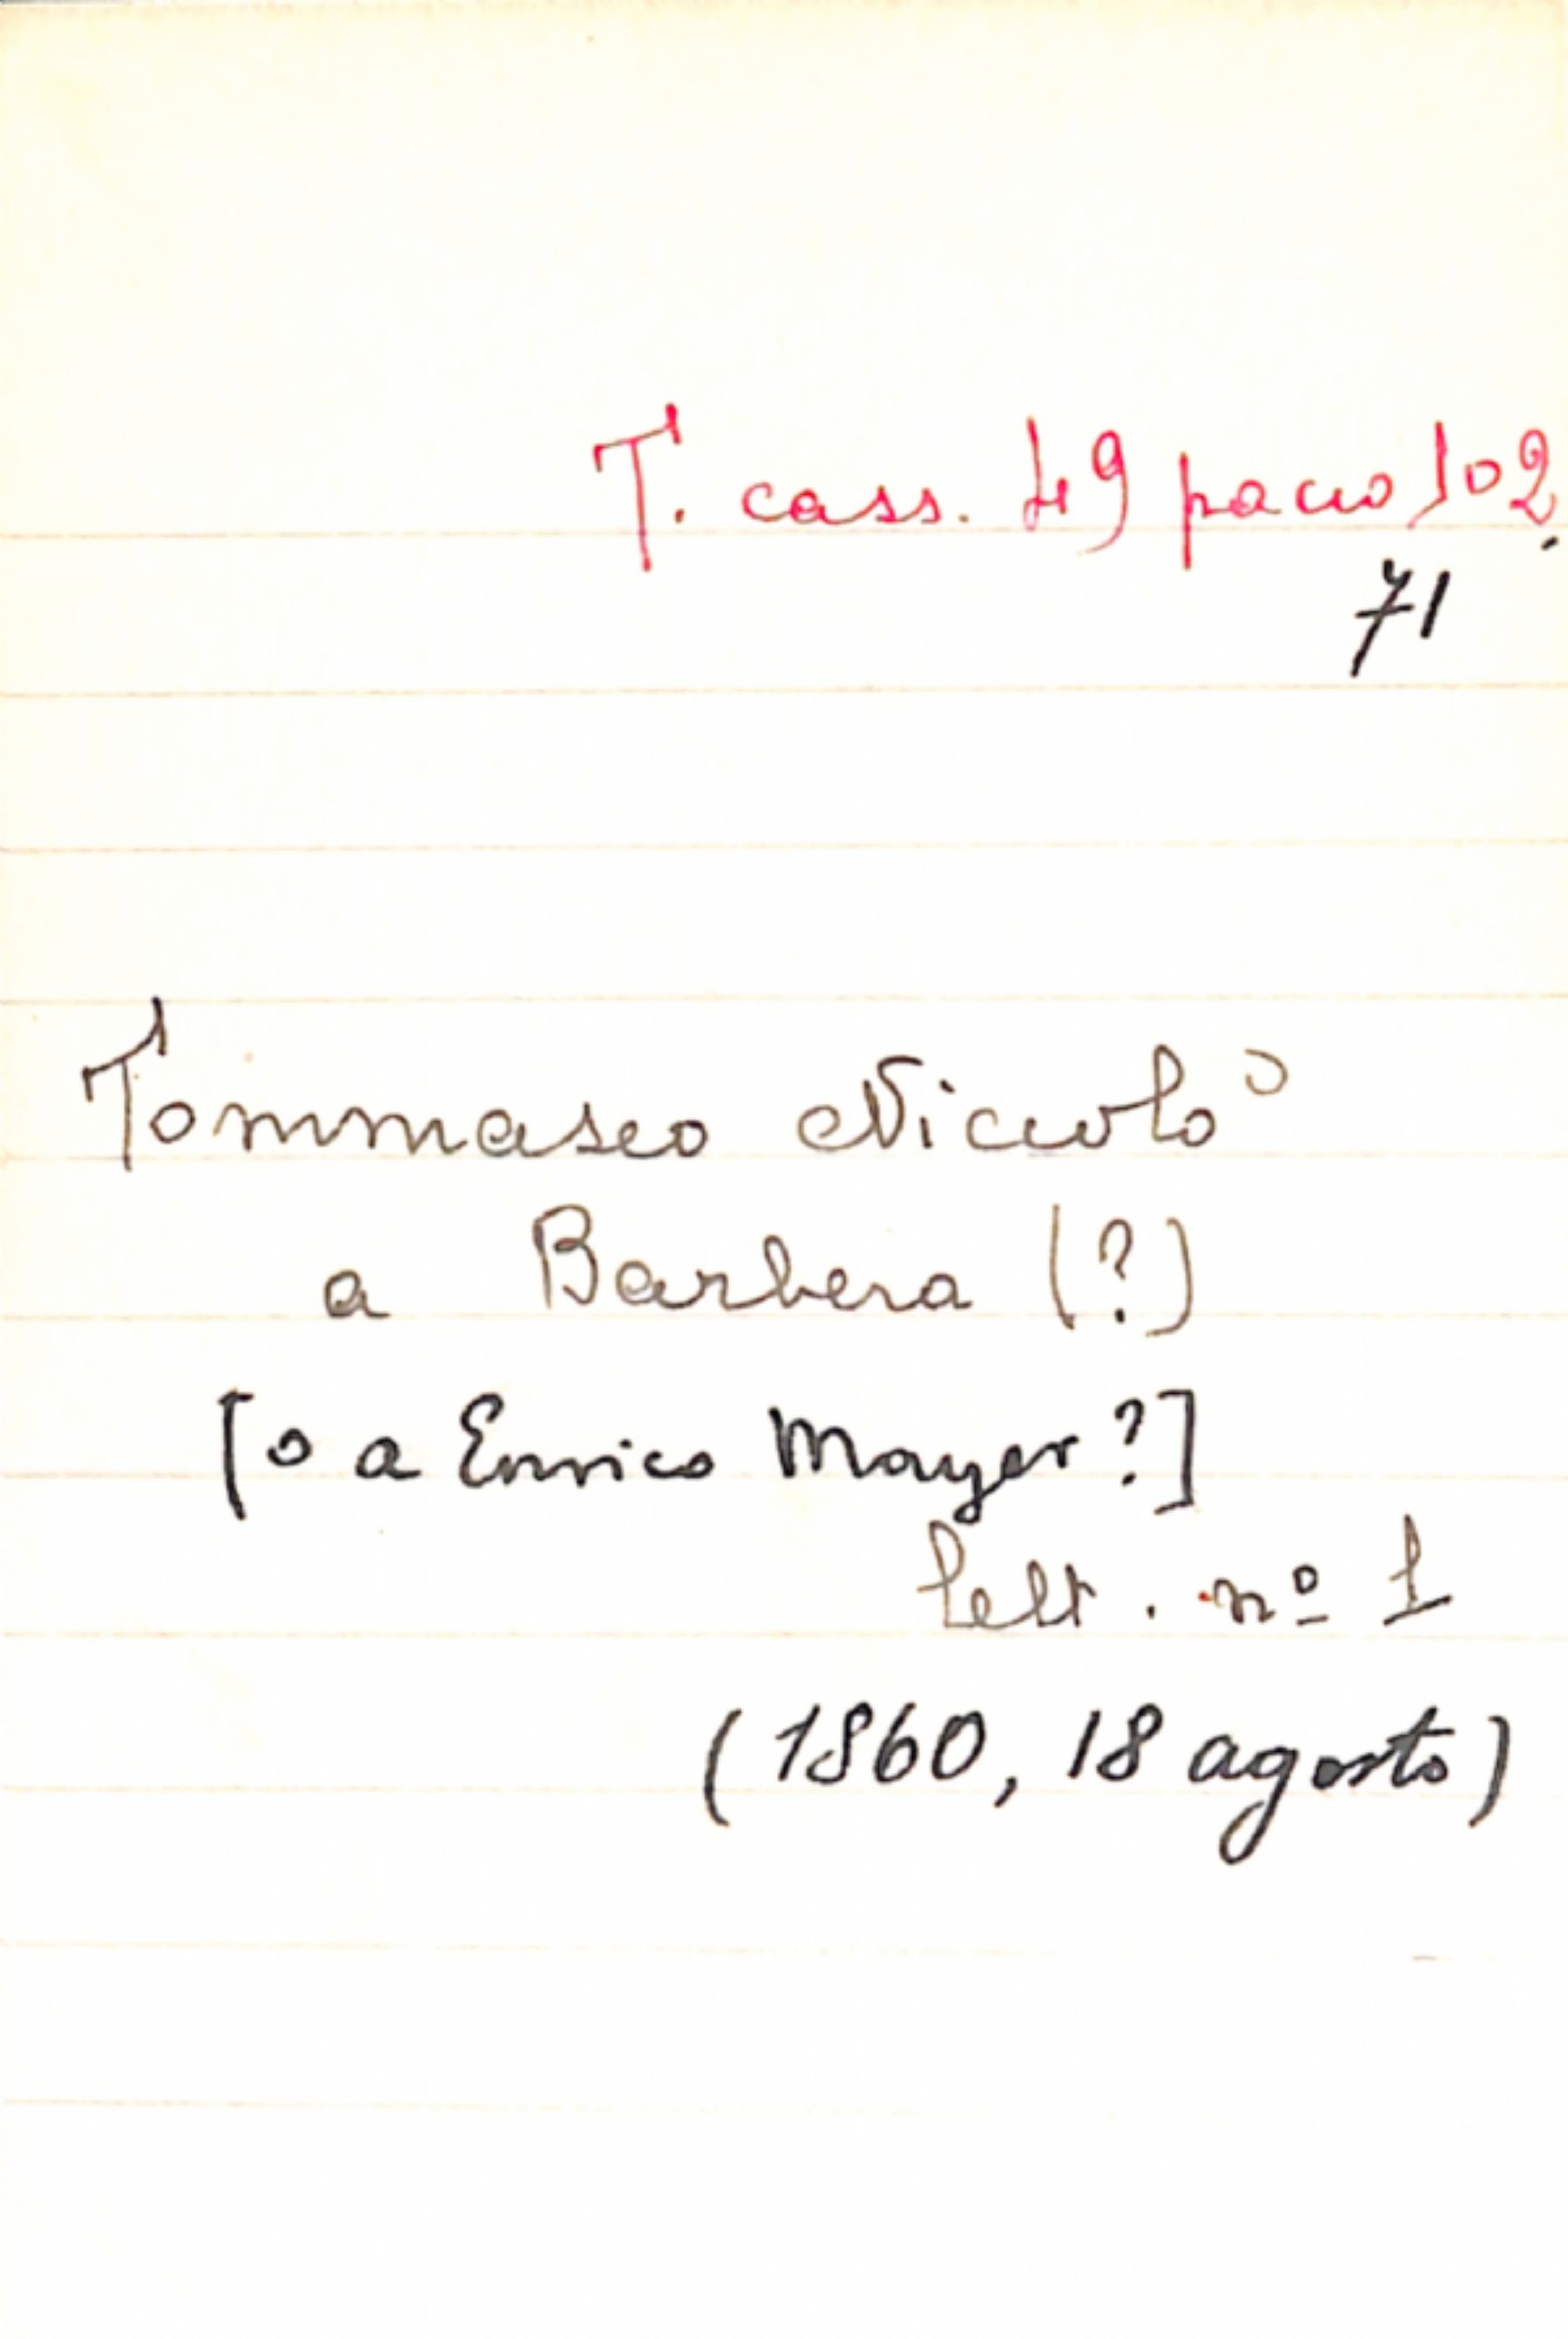 T. cass. 49 pacco 102.
71
Tommaseo Niccolò
a Barbera (?)
[o a Enrico Mayer?]
lett. nº 1
(1860, 18 agosto)